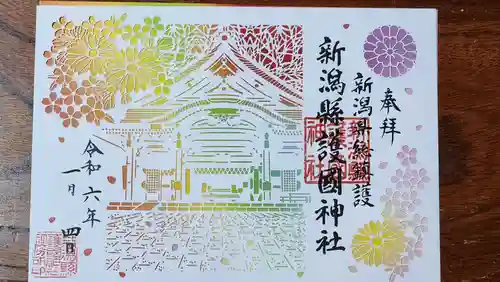 奉拝
新潟県総鎮護
新潟縣護國神社
令和六年
一月四日